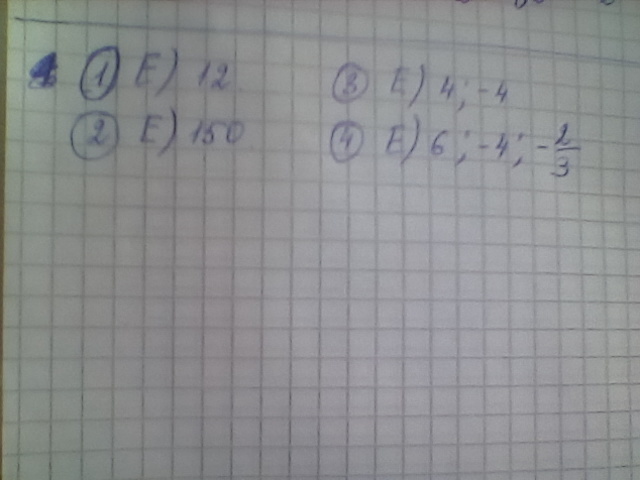 ① E) 12
② E) 150
③ E) 4; -4
④ E) 6; -4; -2/3